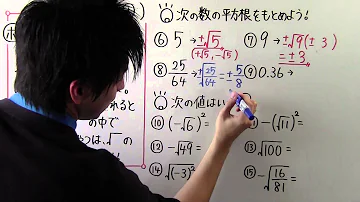 次の数の平方根をもとめよう!
⑥ 5 →±√5
(+√5, -√5)
⑦ 9 →±√9(±3)
=±3
⑧ 25/64 →±√25/64=±5/8
⑨ 0.36→
次の値はい
⑩ (-√6)²=
-(√11)²=
⑫ -√49=
⑬ √100=
⑭ √(-3)²=
⑮ -√16/81=
れると
の中で
つは、√の